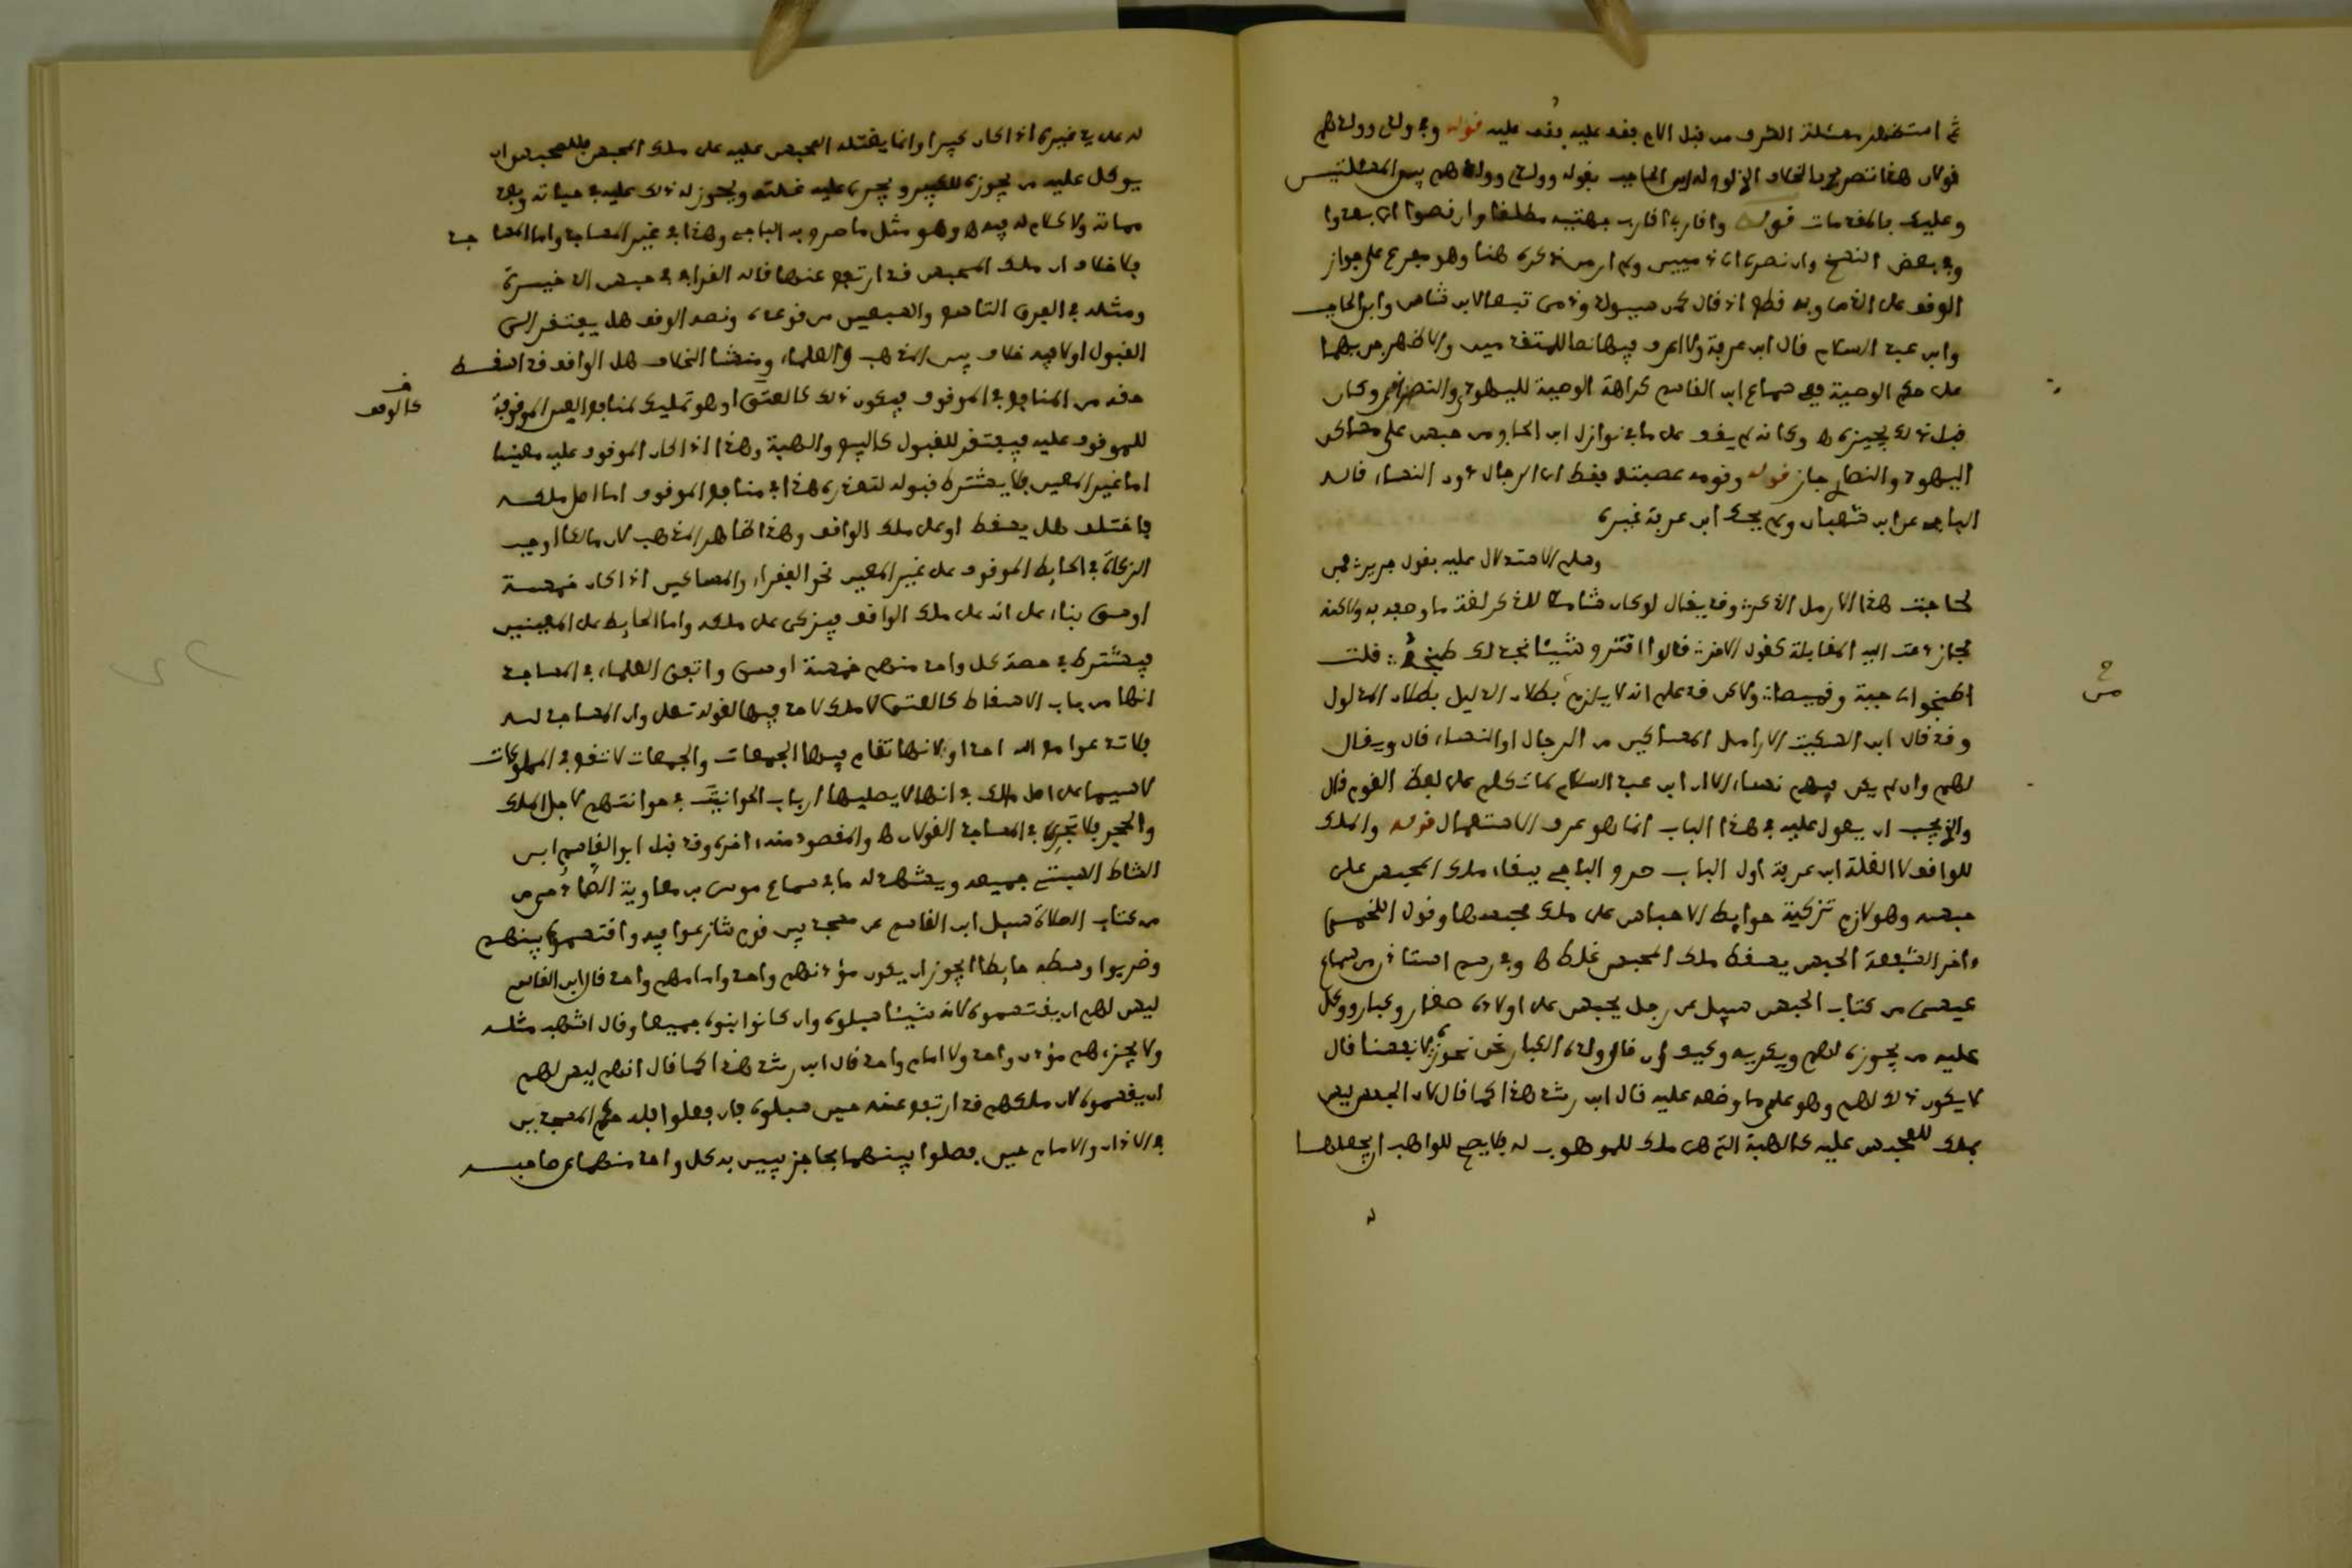 ثم استظهر مسئلة الطرف من قبل الام بقف عليه بقف عليه قوله وفي ولدي وولدهم
قولان هذا تصريح بالخلاف الذي لوح له ابن الحاجب بقوله وولدي وولدهم بين المسئلتين
وعليك بالمقدمات قوله واقاربي اقارب جهتيه مطلقا وان نصوا اي بعدوا
وفي بعض النسخ وان نصرى اي ذميين ولم ار من ذكره هنا وهو مفرع على جواز
الوقف على الذمي وبه قطع اذ قال كمن سيولد وذمي تبعا لابن شاس وابن الحاجب
وابن عبد السلام قال ابن عرفة ولا اعرف فيها نصا للمتقدمين والاظهر جريها
على حكم الوصية ففي سماع ابن القاسم كراهة الوصية لليهودي والنصراني وكان
قبل ذلك يجيزه وكانه لم يقف على ما في نوازل ابن الحاج من حبس على مساكين
اليهود والنصارى جاز قوله وقومه عصبته فقط اي الرجال دون النساء قاله
الباجي عن ابن شعبان ولم يحك ابن عرفة غيره
وسلم الاستدلال عليه بقول جرير فمن
لحاجة هذا الارمل الذكر وقد يقال لو كان شاملا للذكر لغة ما وصفه به ولاكنه
مجاز دعت اليه المقابلة كقول الاخر قالوا اقترح شيئا نجد لك طبخه قلت
اطبخوا لي جبة وقميصا ولاكن قد علم انه لا يلزم بطلان الدليل بطلان المدلول
وقد قال ابن السكيت الارامل المساكين من الرجال او النساء قال ويقال
لهم وان لم يكن فيهم نساء الا ان ابن عبد السلام لما تكلم على لفظ القوم قال
والذي يجب ان يعول عليه في هذا الباب انما هو عرف الاستعمال قوله والملك
للواقف لا الغلة ابن عرفة اول الباب صرح الباجي ببقاء ملك المحبس على
حبسه وهو لازم تزكية حوايط الاحباس على ملك محبسها وقول اللخمي
واخر الشفعة الحبس يسقط ملك المحبس غلط وفي رسم استاذن من سماع
عيسى من كتاب الحبس سيل عن رجل يحبس على اولاده صغار وكبار ووكل
عليه من يحوزه لهم ويكريه وكيف ان قال ولده الكبار نحن نحوزه لانفسنا قال
لا يكون ذلك لهم وهو على ما وضعه عليه قال ابن رشد هذا كما قال لان الحبس ليس
بملك للمحبس عليه كالهبة التي هي ملك للموهوب له فلا يصح للواهب ان يجعلها
له على يد غيره اذا كان كبيرا وانما يغتله المحبس عليه على ملك المحبس فللمحبس ان
يوكل عليه من يحوزه للكبير ويجري عليه غلته ويجوز له ذلك عليه في حياته وبعد
مماته ولا كلام له فيه وهو مثل ما صرح به الباجي وهذا في غير المساجد واما المساجد
فلا خلاف ان ملك المحبس قد ارتفع عنها قاله القرافي في حبس الذخيرة
ومثله في الفرق التاسع والسبعين من قواعده ونصه الوقف هل يفتقر الى
القبول او لا فيه خلاف بين المذهب والعلماء ومنشا الخلاف هل الواقف قد اسقط
حقه من المنافع في الموقوف فيكون ذلك كالعتق او هو تمليك لمنافع العين الموقوفة
للموقوف عليه فيفتقر للقبول كالبيع والهبة وهذا اذا كان الموقوف عليه معينا
اما غير المعين فلا يشترط قبوله لتعذره هذا في منافع الموقوف اما اصل ملكه
فاختلف هل يسقط او على ملك الواقف وهذا ظاهر المذهب لان مالكا اوجب
الزكاة في الحايط الموقوف على غير المعين نحو الفقراء والمساكين اذا كان خمسة
اوسق بناء على انه على ملك الواقف فيزكى على ملكه واما الحايط على المعينين
فيشترط في حصة كل واحد منهم خمسة اوسق واتفق العلماء في المساجد
انها من باب الاسقاط كالعتق لا ملك لاحد فيها لقوله تعلى وان المساجد لله
فلا تدعوا مع الله احدا ولانها تقام فيها الجمعات والجمعات لا تقع في المملوكات
لا سيما على اصل مالك في انها لا يصليها ارباب الحوانيت في حوانيتهم لاجل الملك
والحجر فلا تجري في المساجد القولان والمقصود منه اخره وقد قبل ابو القاسم ابن
الشاط السبتي جميعه ويشهد له ما في سماع موسى بن معاوية الصمادحي من
من كتاب الصلاة سيل ابن القاسم عن مسجد بين قوم تنازعوا فيه واقتسموه بينهم
وضربوا وسطه حايطا ايجوز ان يكون مؤذنهم واحد وامامهم واحد قال ابن القاسم
ليس لهم ان يقتسموه لانه شيئا سبلوه وان كانوا بنوه جميعا وقال اشهب مثله
ولا يجزءهم مؤذن واحد ولا امام واحد قال ابن رشد هذا كما قال انهم ليس لهم
ان يقسموه لان ملكهم قد ارتفع عنه حين سبلوه فان فعلوا فله حكم المسجدين
في الاذان والامام حين فصلوا بينهما بحاجز يبين به كل واحد منهما عن صاحبه
كالوقف